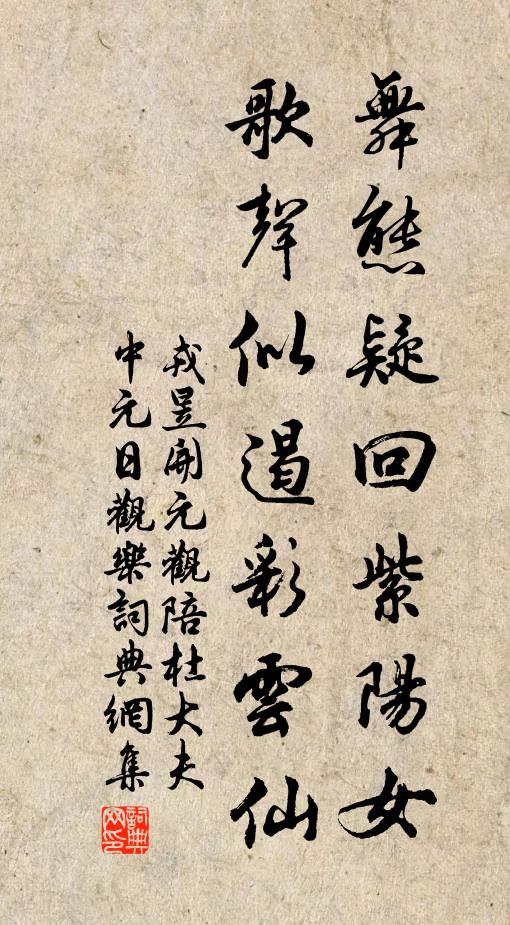 舞態疑回紫陽女
歌聲似遏彩雲仙
戎昱開元觀陪杜大夫
中元日觀樂詞典網集
詞典网印